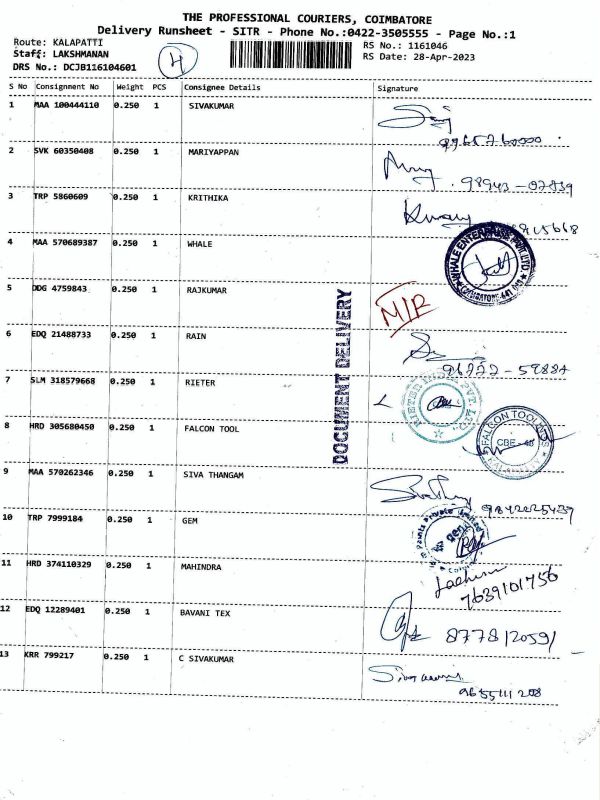 THE PROFESSIONAL COURIERS, COIMBATORE
Delivery Runsheet - SITR - Phone No.:0422-3505555 - Page No.:1
Route: KALAPATTI
Staff: LAKSHMANAN
DRS No.: DCJB116104601
4
RS No.: 1161046
RS Date: 28-Apr-2023
S No Consignment No Weight PCS Consignee Details Signature
1 MAA 100444110 0.250 1 SIVAKUMAR
2 SVK 60350408 0.250 1 MARIYAPPAN
3 TRP 5860609 0.250 1 KRITHIKA
4 MAA 570689387 0.250 1 WHALE
WHALE ENTERPRISE PVT.LTD.
5 DDG 4759843 0.250 1 RAJKUMAR
DOCUMENT DELIVERY
6 EDQ 21488733 0.250 1 RAIN
7 SLM 318579668 0.250 1 RIETER
RIETER INDIA PVT. LTD.
8 HRD 305680450 0.250 1 FALCON TOOL
FALCON TOOLINGS
CBE - 48
9 MAA 570262346 0.250 1 SIVA THANGAM
10 TRP 7999184 0.250 1 GEM
11 HRD 374110329 0.250 1 MAHINDRA
7639101756
12 EDQ 12289401 0.250 1 BAVANI TEX
13 KRR 799217 0.250 1 C SIVAKUMAR
9655111208